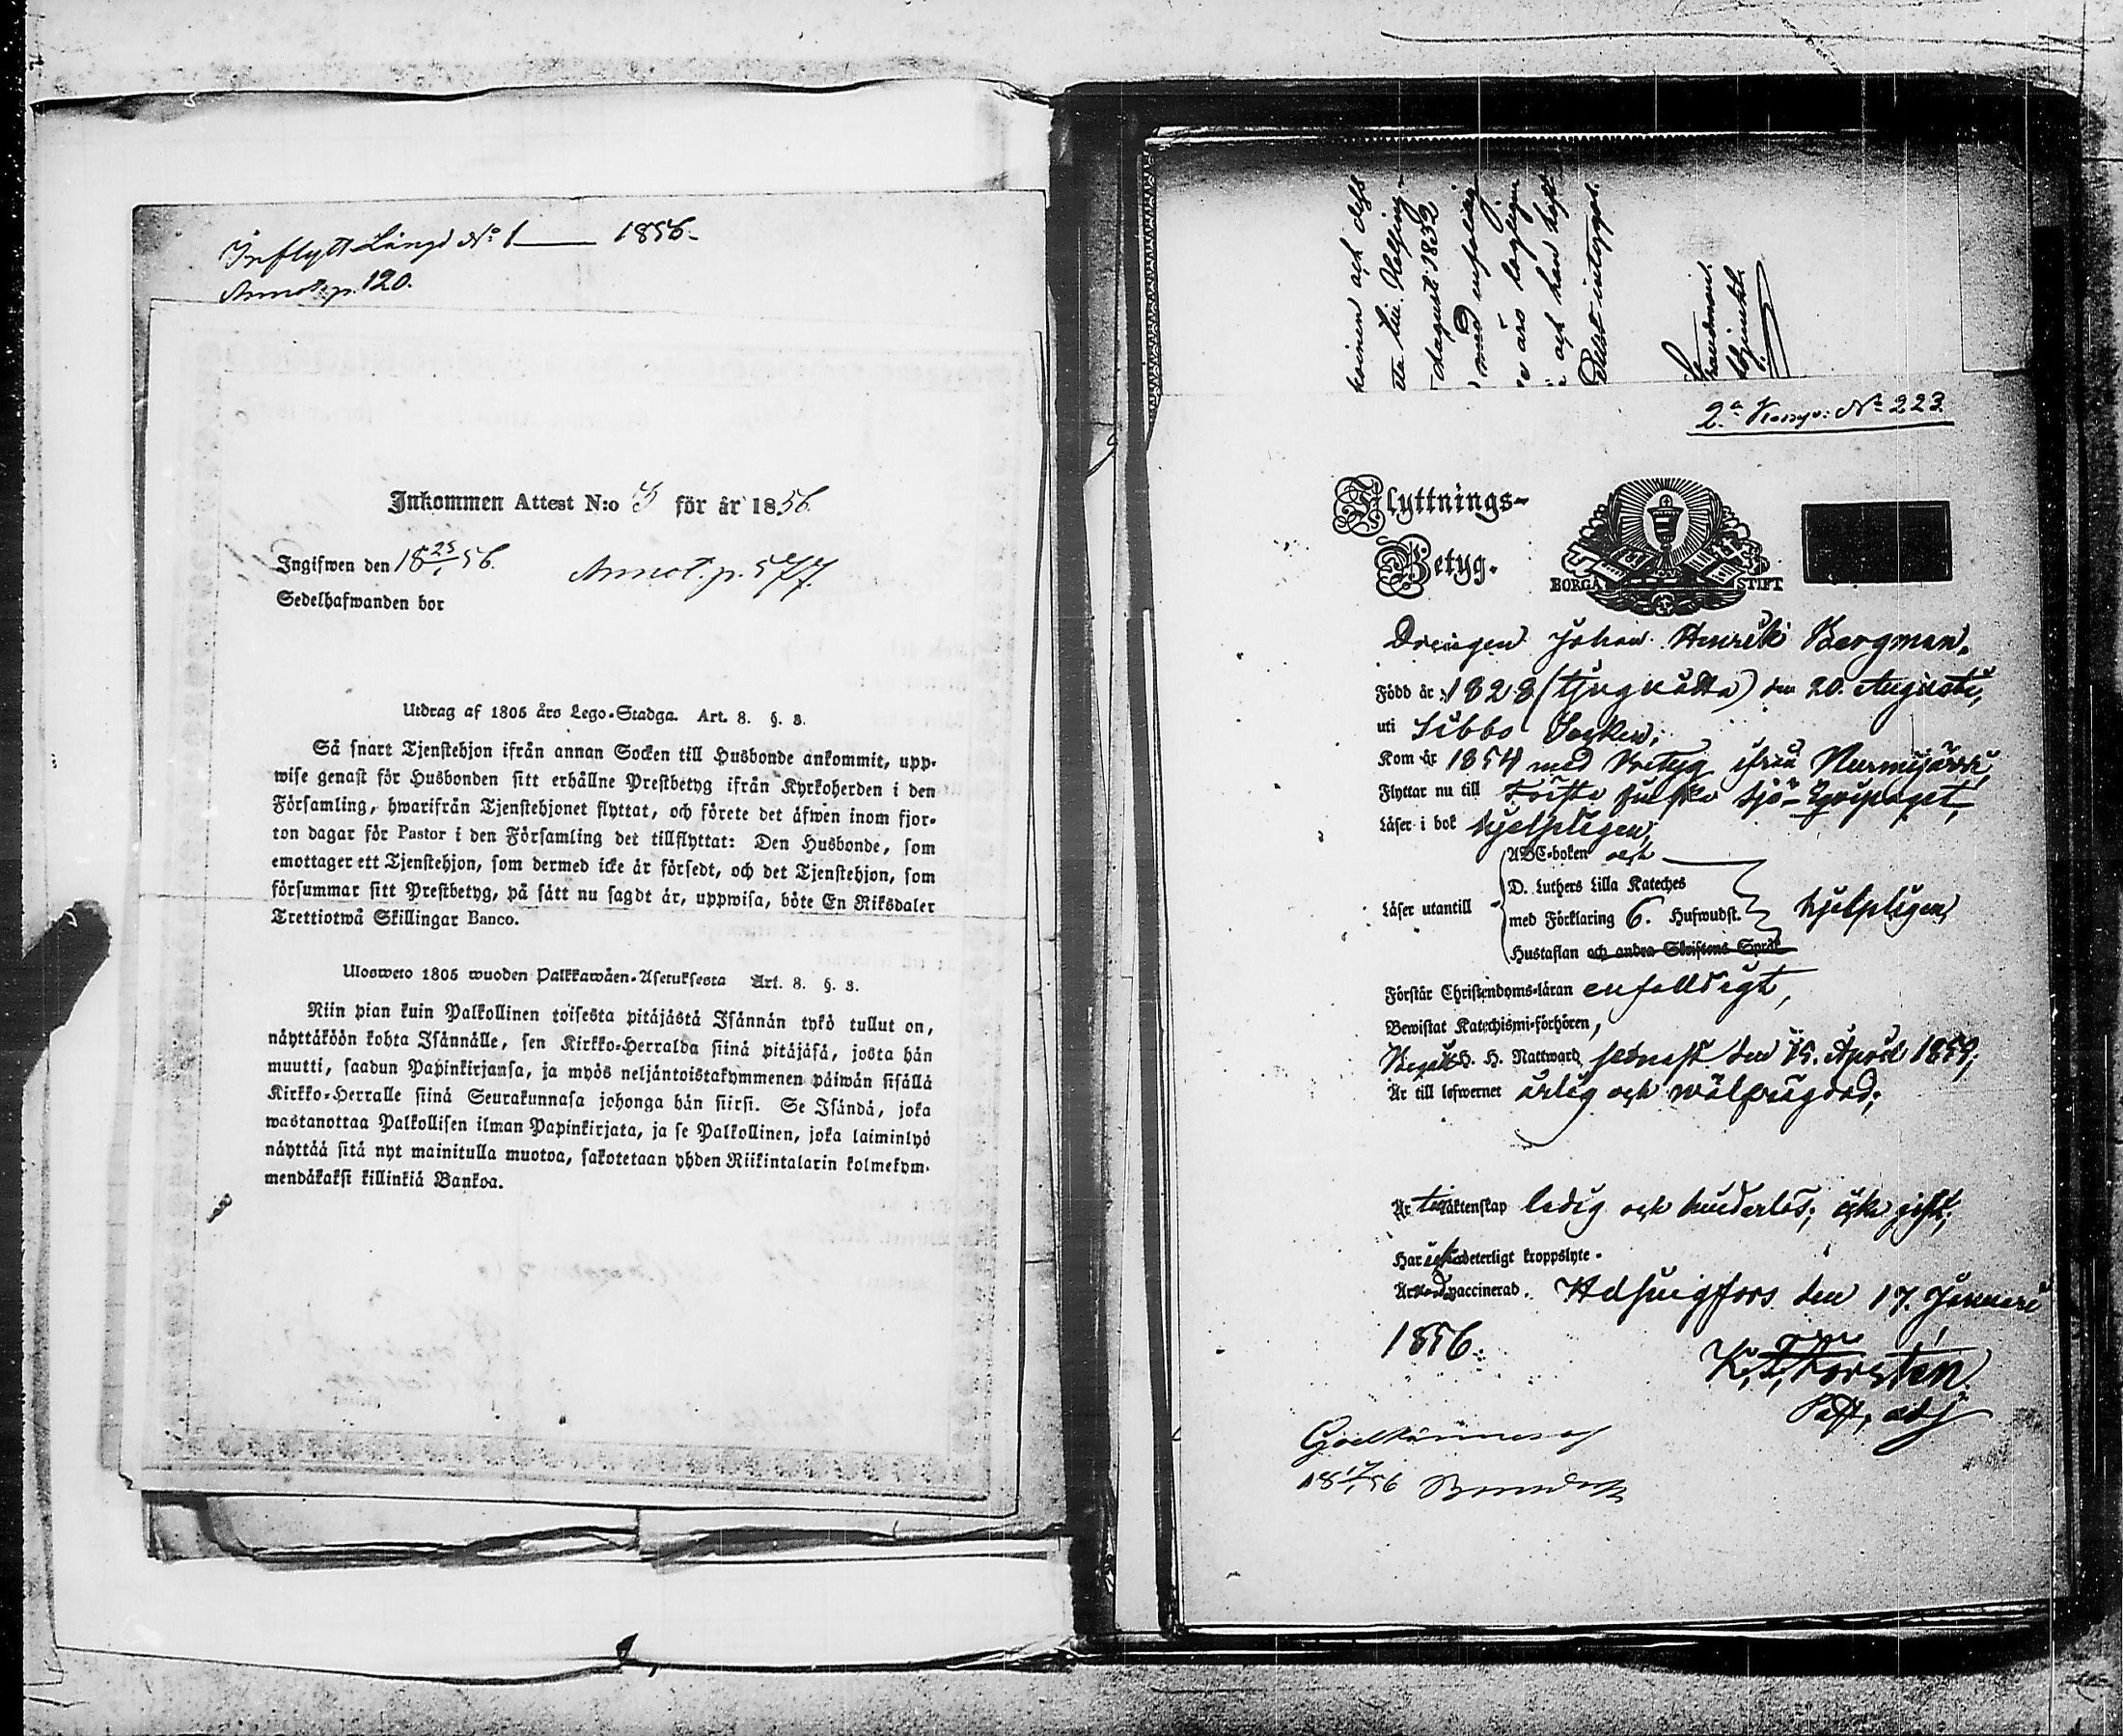 Inflytt Längd No 1 — 1856.
Annot. p. 120.
Inkommen Attest N:o 5 för år 1856.
Ingifwen den 18 25/1 56. Annot. p. 577.
Sedelhafwanden bor
Utdrag af 1805 års Lego-Stadga. Art. 8. §. 3.
Så snart Tjenstehjon ifrån annan Socken till Husbonde ankommit, upp-
wise genast för Husbonden sitt erhållne Prestbetyg ifrån Kyrkoherden i den
Församling, hwarifrån Tjenstehjonet flyttat, och förete det äfwen inom fjor-
ton dagar för Pastor i den Församling det tillflyttat: Den Husbonde, som
emottager ett Tjenstehjon, som dermed icke är försedt, och det Tjenstehjon, som
försummar sitt Prestbetyg, på sätt nu sagdt är, uppwisa, böte En Riksdaler
Trettiotwå Skillingar Banco.
Uloswеto 1805 wuoden Palkkawäen-Asetuksesta Art. 8. §. 3.
Niin pian kuin Palkollinen toisesta pitäjästä Isännän tykö tullut on,
näyttäköön kohta Isännälle, sen Kirkko-Herralda siinä pitäjäsä, josta hän
muutti, saadun Papinkirjansa, ja myös neljäntoistakymmenen päiwän sisällä
Kirkko-Herralle siinä Seurakunnasa johonga hän siirsi. Se Isändä, joka
wastanottaa Palkollisen ilman Papinkirjata, ja se Palkollinen, joka laiminlyö
näyttää sitä nyt mainitulla muotoa, sakotetaan yhden Riikintalarin kolmekym-
mendäkaksi killinkiä Bankoa.
och dess
Helsing-
August 1832
med enfaldig
äro lagligen
och han
2a No 223
Flyttnings-
Betyg.
BORGÅ STIFT
Drengen Johan Henrik Bergman,
Född år 1828 (tjuguåtta) den 20. Augusti,
uti Sibbo Socken;
Kom år 1854 med Betyg ifrån Nurmijärvi,
Flyttar nu till Första finska Sjö-Equipaget,
Läser i bok hjelpligen,
Läser utantill
ABC-boken och
D. Luthers Lilla Kateches
med Förklaring 6. Hufwudst. hjelpligen,
Hustaflan och andra Skriftens Språk
Förstår Christendoms-läran enfalldigt,
Bewistat Katechismi-förhören,
Begått H. H. Nattward senast den 15. April
Är till lefwernet ärlig och wälfrägdad;
Är till äktenskap ledig och hinderlös; icke gift;
Har icke beterligt kroppslyte.
Är vaccinerad. Helsingfors den 17. Januari
1856.
K. Forstén
Past. adj
Godkännes af
18 17/1 56